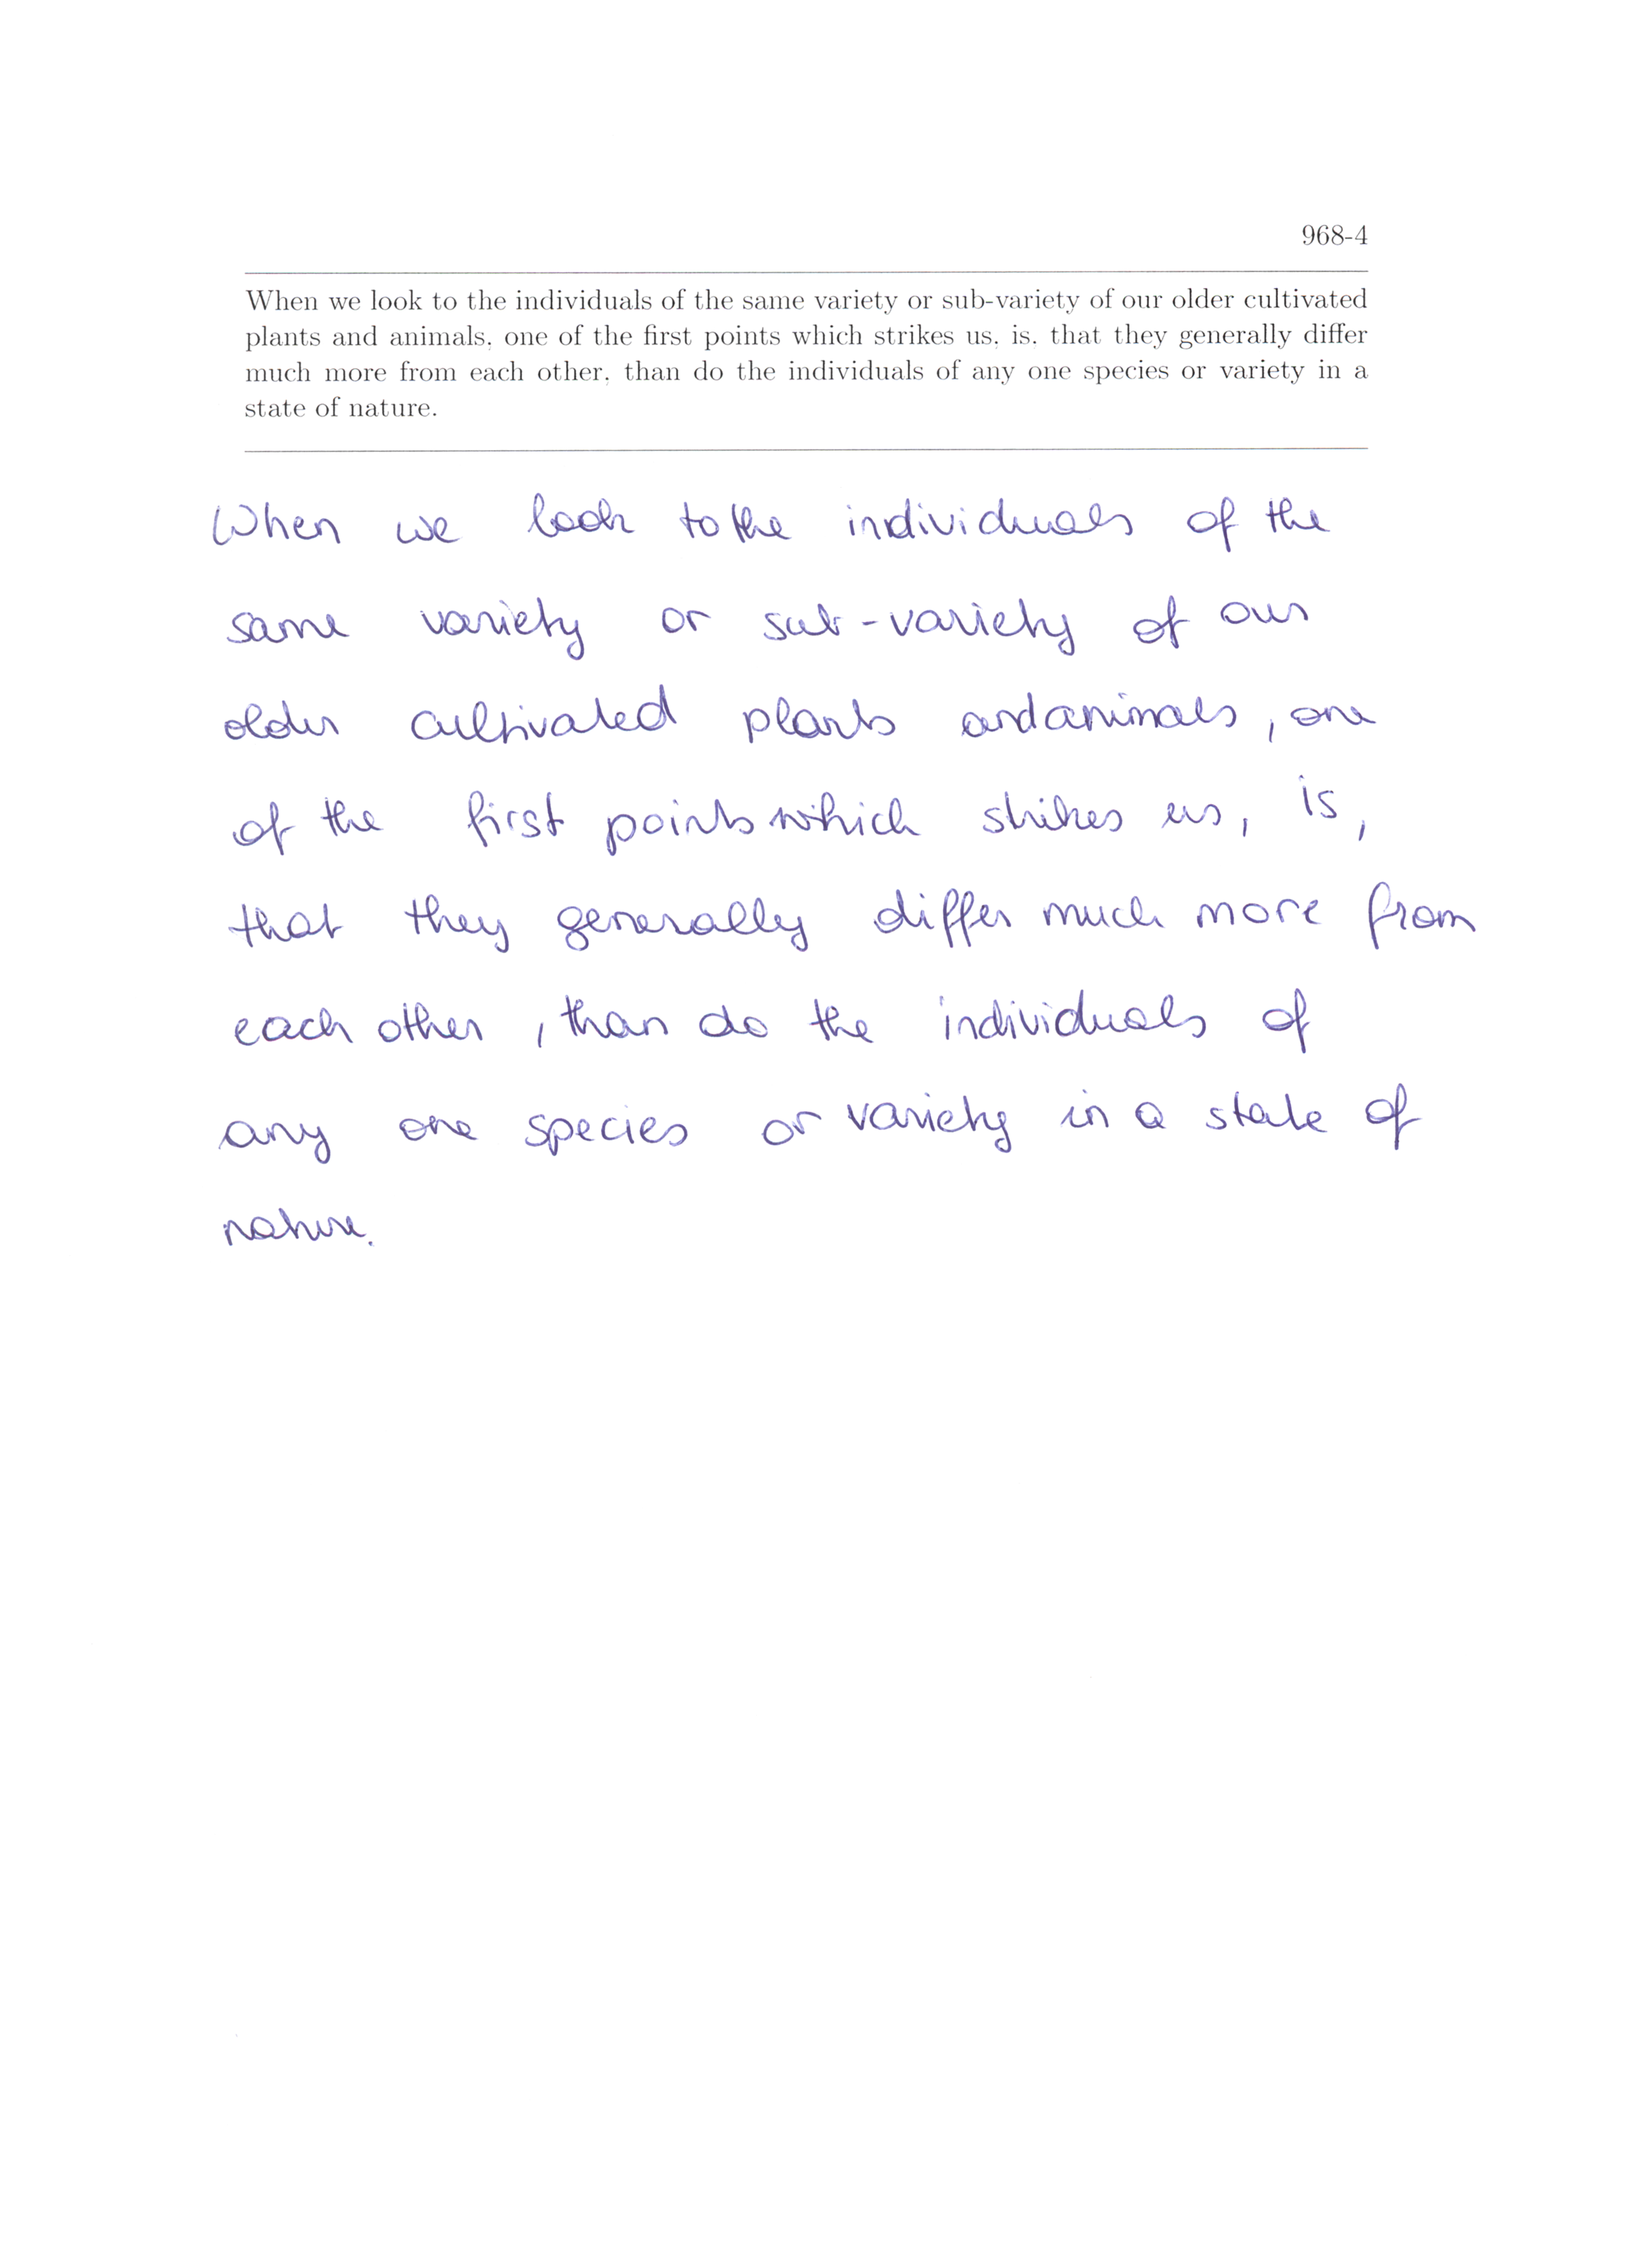 968-4
When we look to the individuals of the same variety or sub-variety of our older cultivated
plants and animals, one of the first points which strikes us, is, that they generally differ
much more from each other, than do the individuals of any one species or variety in a
state of nature.
When we look to the individuals of the
same variety or sub-variety of our
older cultivated plants and animals, one
of the first points which strikes us, is,
that they generally differ much more from
each other, than do the individuals of
any one species or variety in a state of
nature.